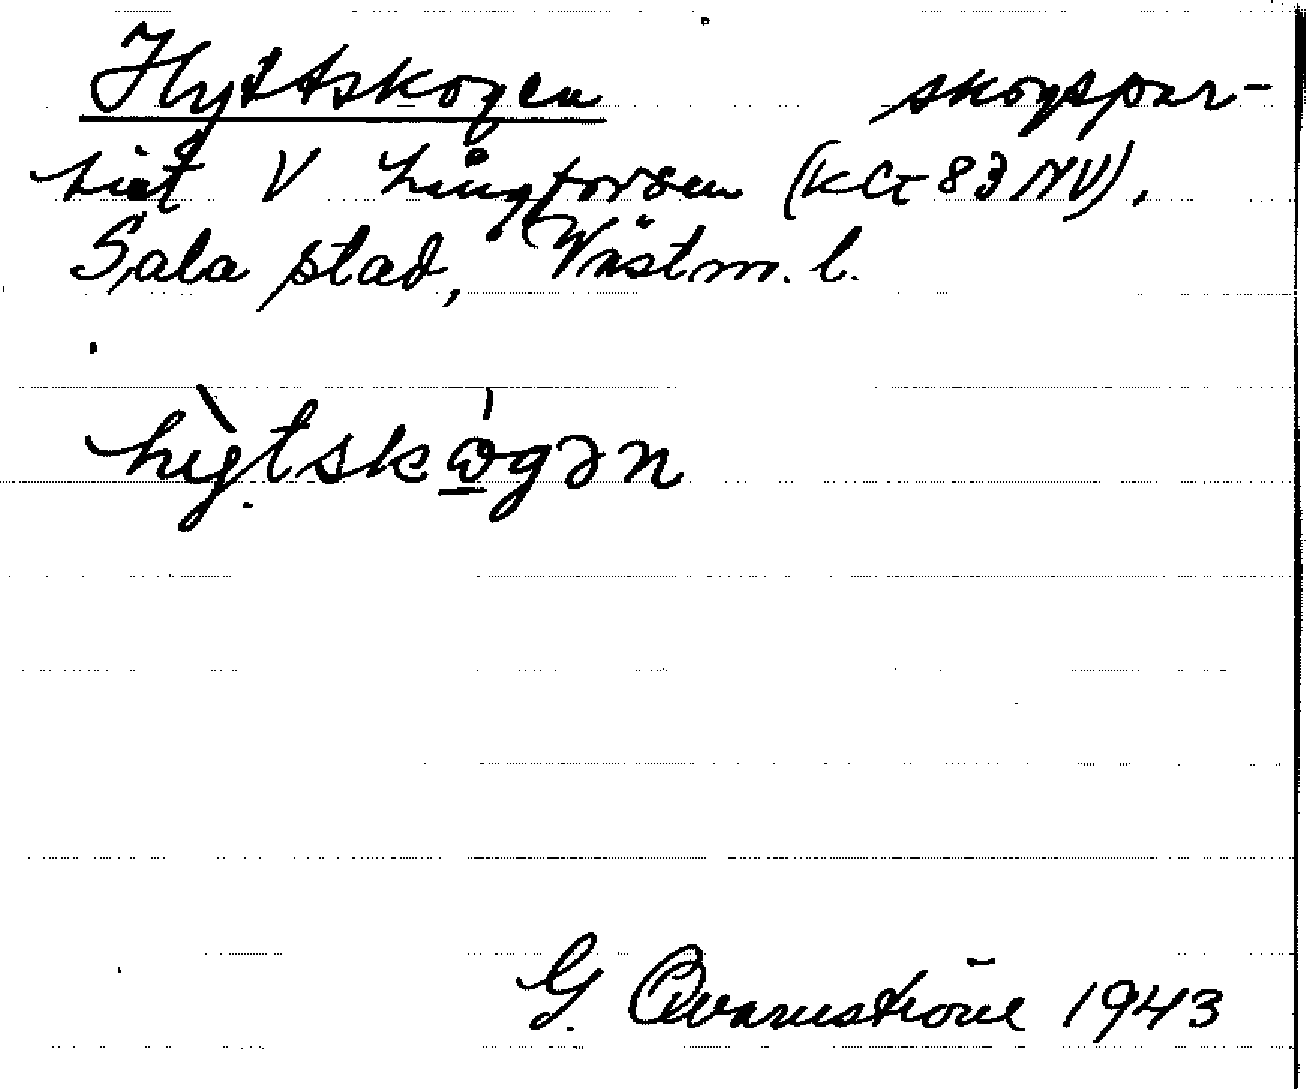 Hyttskogen skogspar-
tiet V Långforsen (KG 83 NV),
Sala stad, Västm. l.
hy̩̏tskώ̲gən
G. Qvarnström 1943